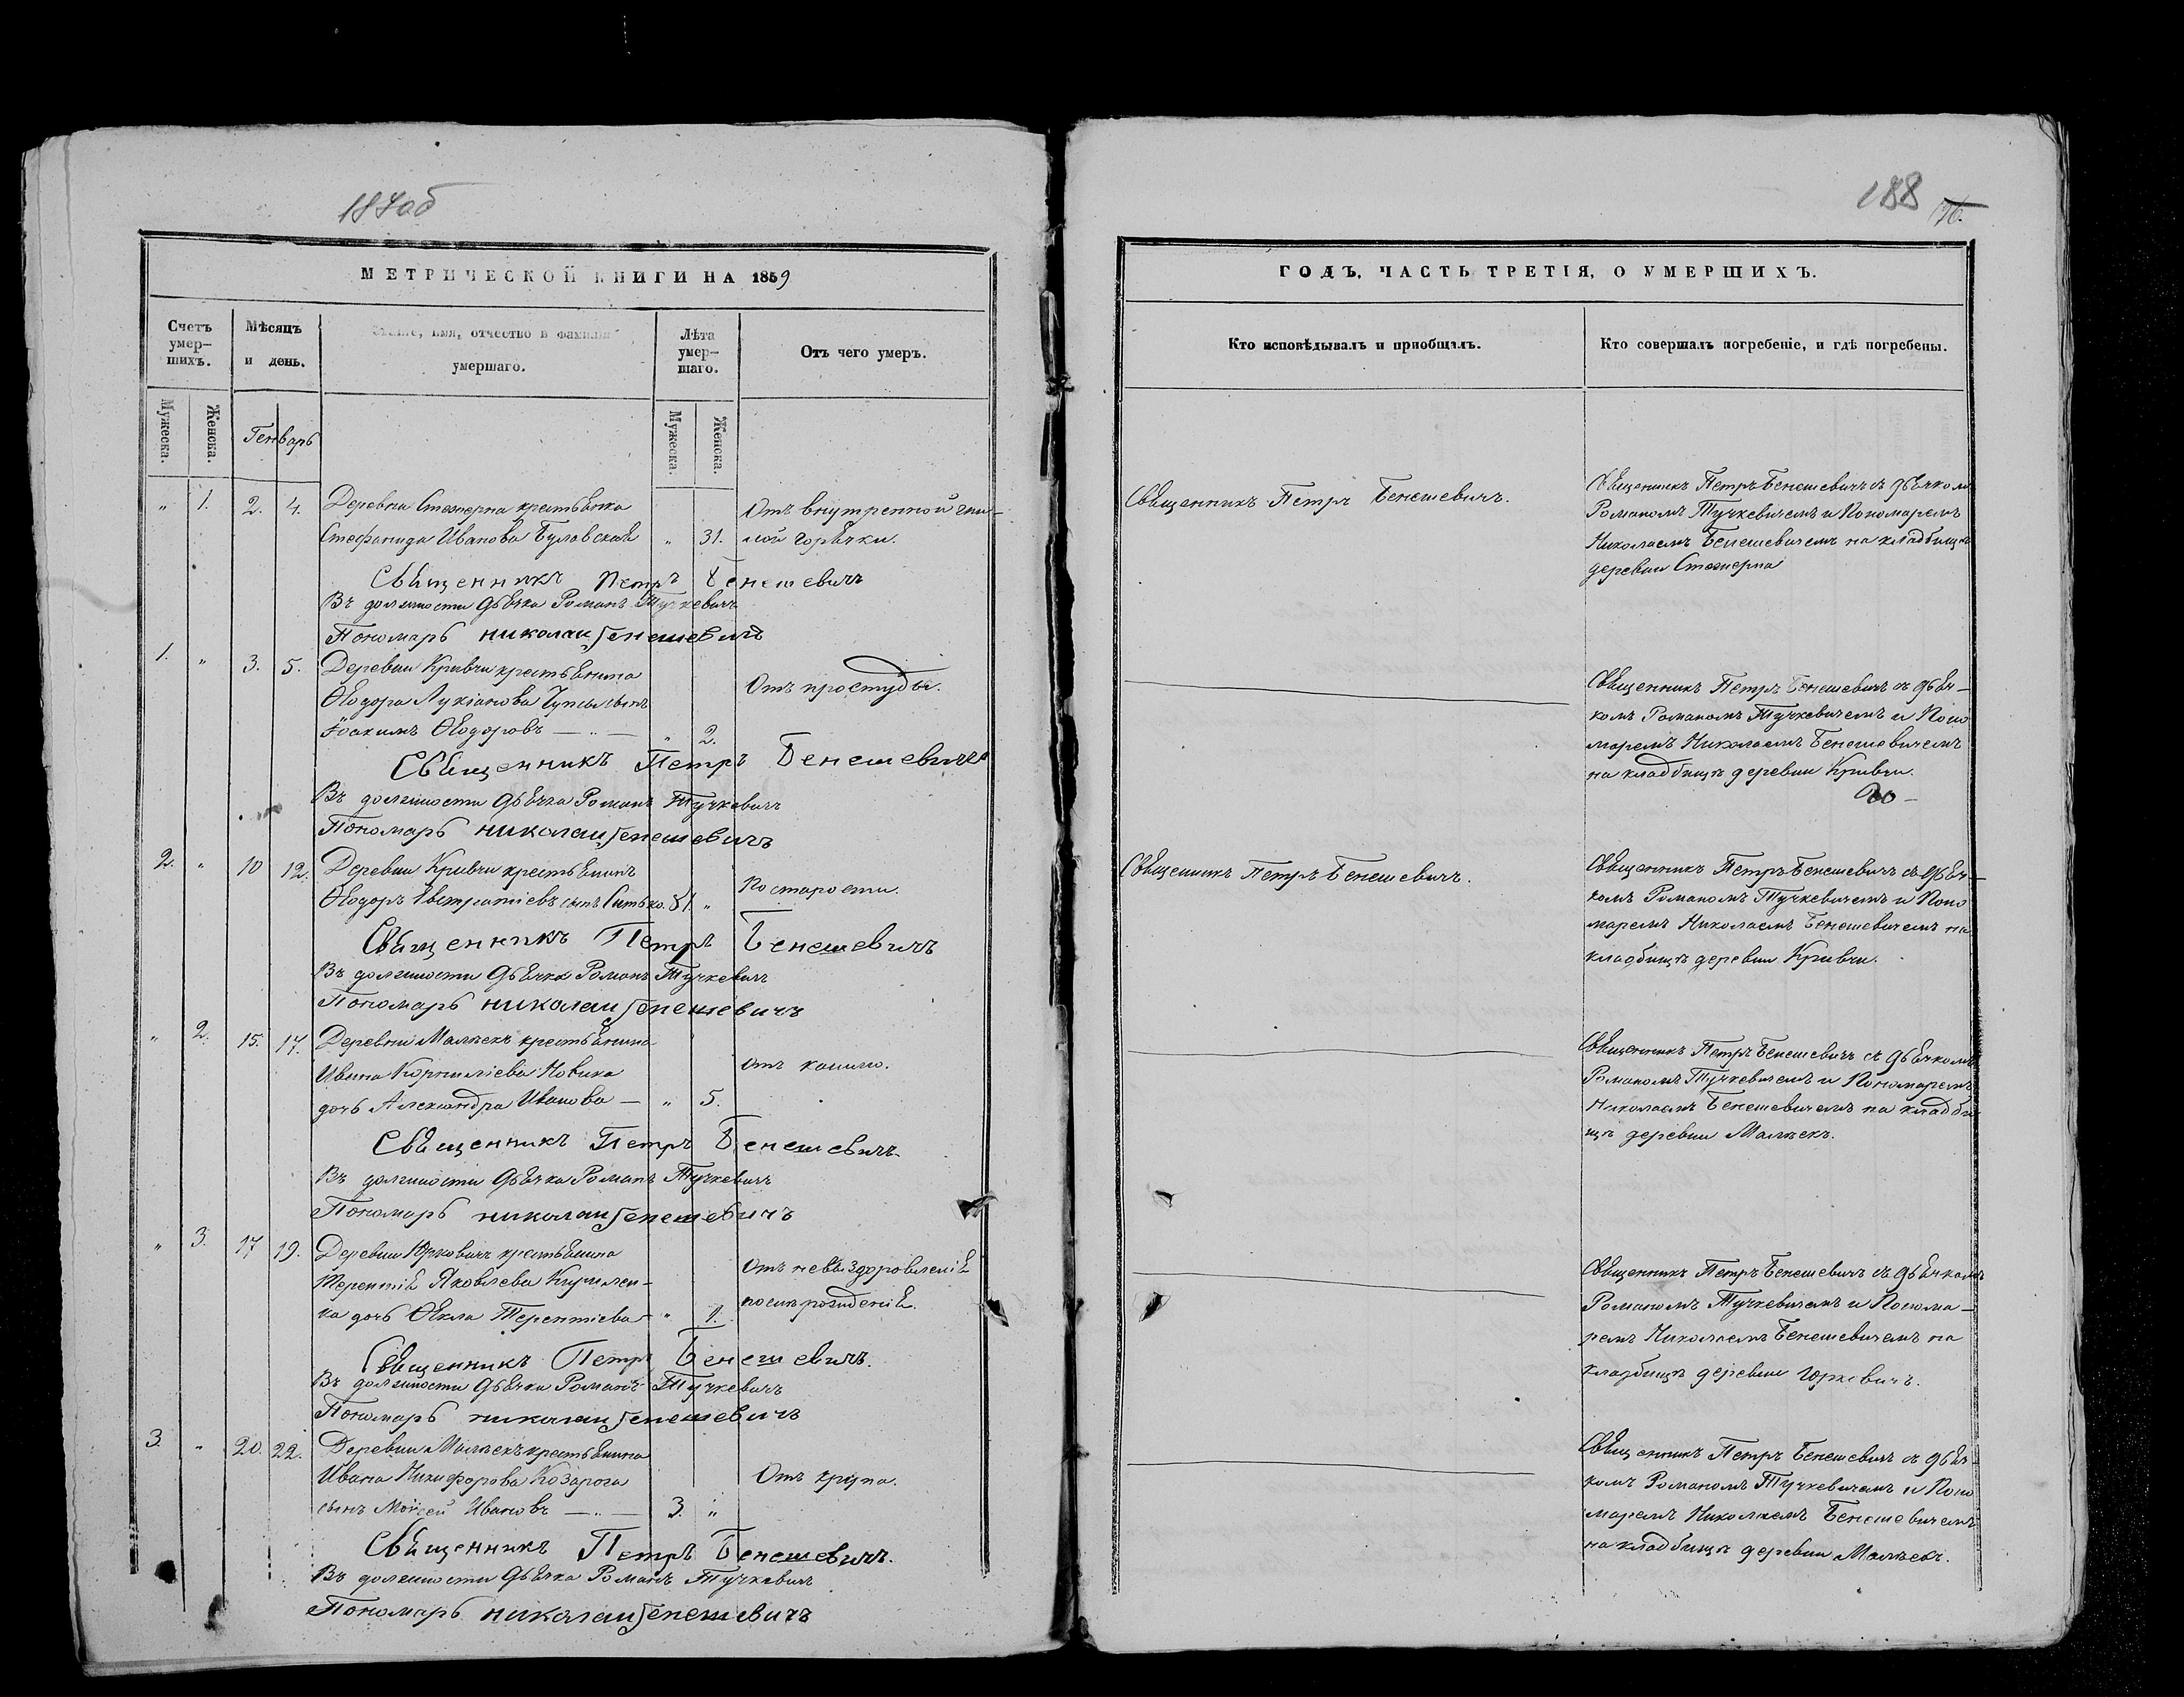 187об
МЕТРИЧЕСКОЙ КНИГИ НА 1859
Счетъ умер-
шихъ.
Мѣсяцъ
и день.
имя, отчество и фамилія
умершаго.
Лѣта
умер-
шаго.
Отъ чего умеръ.
Мужеска.
Женска.
Генварь
Мужеска.
Женска.
" 1. 2. 4. Деревни крестьянка
Стефанида Иванова Булавская " 31.
Отъ внутренной гни-
лой горячки.
Священникъ Петръ Бенешевичъ
Въ должности дьячка Романъ Тучкевичъ
Пономарь николай бенешевичъ
1. " 3. 5. Деревни Кривчи крестьянина
Ѳеодора Лукіанова
Ѳеодоровъ — " — " 2.
Отъ простуды.
Священникъ Петръ Бенешевичъ
Въ должности дьячка Романъ Тучкевичъ
Пономарь николай бенешевичъ
2. " 10 12. Деревни Кривчи крестьянинъ
Ѳеодоръ Евстратіевъ сынъ 81. "
По старости.
Священникъ Петръ Бенешевичъ
Въ должности дьячка Романъ Тучкевичъ
Пономарь николай бенешевичъ
" 2. 15. 17. Деревни крестьянина
Ивана Корниліева Новика
дочь Александра Иванова — " 5.
отъ кашлю.
Священникъ Петръ Бенешевичъ
Въ должности дьячка Романъ Тучкевичъ
Пономарь николай бенешевичъ
" 3. 17 19. Деревни Юрковичъ крестьянина
Терентія Яковлева Кирилен-
ка дочь Ѳекла Терентіева — " 1.
Отъ невыздоровленія
послѣ рожденія.
Священникъ Петръ Бенешевичъ.
Въ должности дьячка Романъ Тучкевичъ
Пономарь николай бенешевичъ
3. " 20. 22. Деревни крестьянина
Ивана Никифорова Козарога
сынъ Мойсей Ивановъ — " — 3. "
Отъ крупа.
Священникъ Петръ Бенешевичъ.
Въ должности дьячка Романъ Тучкевичъ
Пономарь николай бенешевичъ
188
ГОДЪ, ЧАСТЬ ТРЕТІЯ, О УМЕРШИХЪ.
Кто исповѣдывалъ и пріобщалъ.
Кто совершалъ погребеніе, и гдѣ погребены.
Священникъ Петръ Бенешевичъ.
Священникъ Петръ Бенешевичъ съ дьячкомъ
Романомъ Тучкевичемъ и Пономаремъ
Николаемъ Бенешевичемъ на кладбищѣ
деревни
Священникъ Петръ Бенешевичъ съ дьяч-
комъ Романомъ Тучкевичемъ и Поно
маремъ Николаемъ Бенешевичемъ
на кладбищѣ деревни Кривчи.
Священникъ Петръ Бенешевичъ.
Священникъ Петръ Бенешевичъ съ дьяч-
комъ Романомъ Тучкевичемъ и Поно
маремъ Николаемъ Бенешевичемъ на
кладбищѣ деревни Кривчи.
Священникъ Петръ Бенешевичъ съ дьячкомъ
Романомъ Тучкевичемъ и Пономаремъ
Николаемъ Бенешевичемъ на кладби
щѣ деревни
Священникъ Петръ Бенешевичъ съ дьячкомъ
Романомъ Тучкевичемъ и Понома-
ремъ Николаемъ Бенешевичемъ на
кладбищѣ деревни Юрковичъ.
Священникъ Петръ Бенешевичъ съ дьяч-
комъ Романомъ Тучкевичемъ и Поно
маремъ Николаемъ Бенешевичемъ
на кладбищѣ деревни